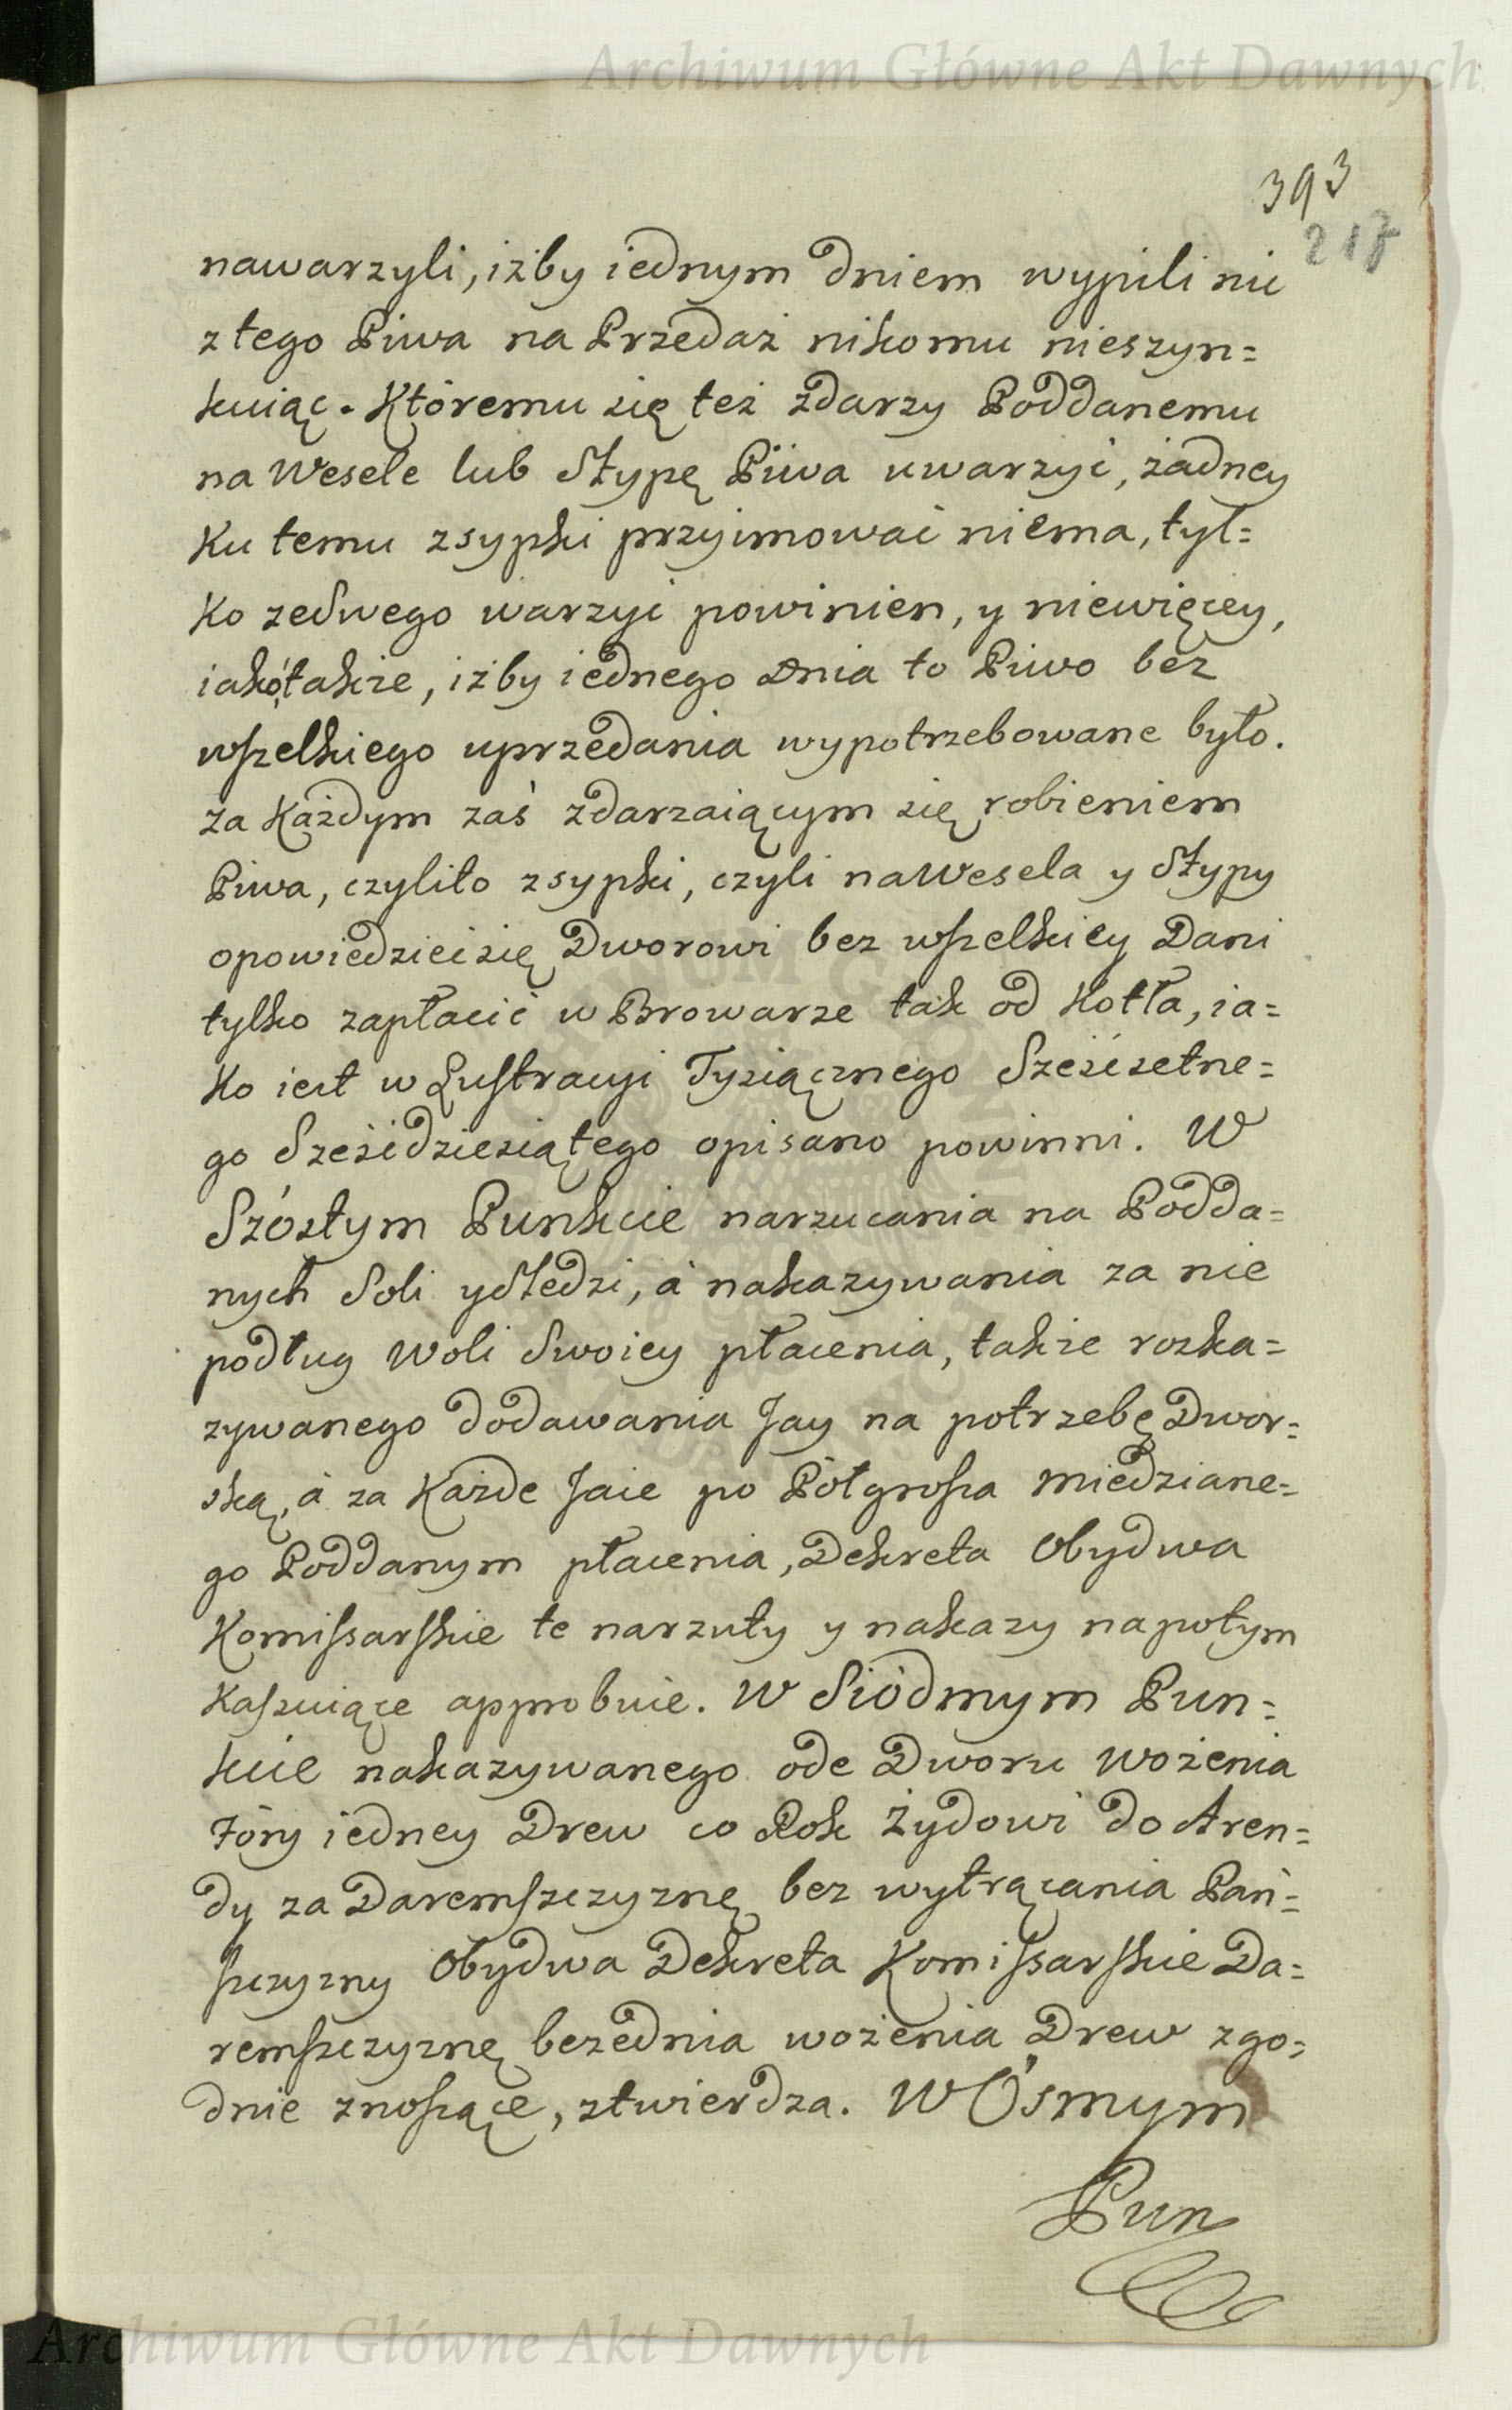 Archiwum Główne Akt Dawnych
393
217
nawarzyli, iżby iednym dniem wypili nic
z tego Piwa na Przedaż nikomu nieszyn=
kuiąc. Któremu się też zdarzy Poddanemu
na Wesele lub Stypę Piwa uwarzyć, żadney
Ku temu zsypki przyimować niema, tyl=
Ko zeswego warzyć powinien, y niewięcey,
iakótakże, iżby iednego Dnia to Piwo bez
wszelkiego uprzedania wypotrzebowane było.
za Każdym zaś zdarzaiącym się robieniem
Piwa, czylito zsypki, czyli na Wesela y Stypy
opowiedziećsię Dworowi bez wszelkiey Dani
tylko zapłacić w Browarze tak od Kotła, ia=
Ko iest w Lustracyi Tysiącznego Sześćsetne=
go Sześćdziesiątego opisano powinni. W
Szóstym Punkcie narzucania na Podda=
nych Soli ySledzi, á nakazywania za nie
podług Woli Swoiey płacenia, także rozka=
zywanego dodawania Jay na potrzebę Dwor=
ską, á za Każde Jaie po Półgrosza Miedziane=
go Poddanym płacenia, Dekreta Obydwa
Komissarskie te narzuty y nakazy napotym
Kassuiące approbuie. W Siódmym Pun=
kcie nakazywanego ode Dworu Wożenia
Fóry iedney Drew co Rok Żydowi do Aren=
dy za Daremszczyznę bez wytrącania Pań=
szczyzny Obydwa Dekreta Komissarskie Da=
remszczyznę bezednia wożenia Drew zgo=
dnie znoszące, ztwierdza. W Ósmym
Pun
Archiwum Główne Akt Dawnych